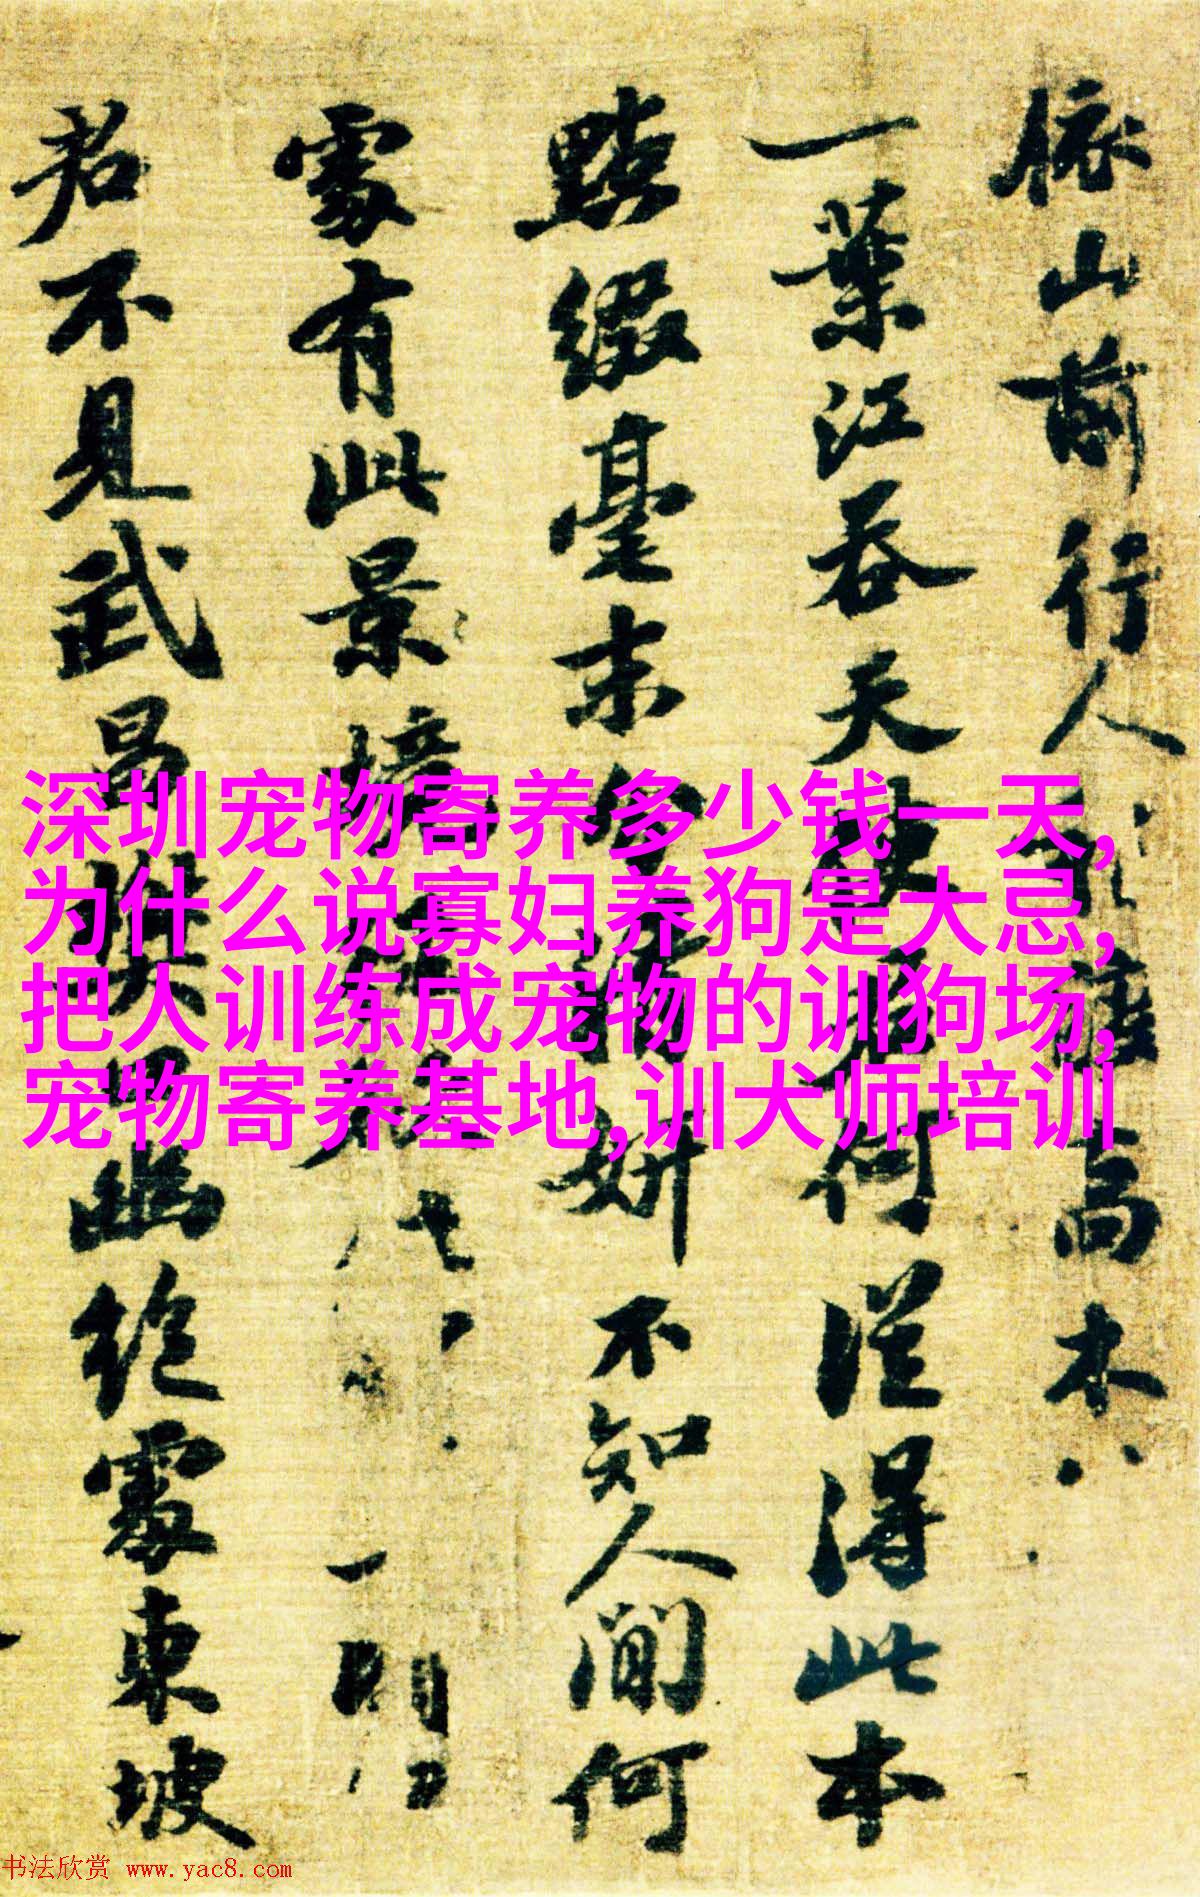 依山前行人稍度喬木
一葉江吞天使君何從得此本
點綴毫末分清妍不知人間何
處有此景
君不見武昌樊口幽絕處東坡
深圳宠物寄养多少钱一天,
为什么说寡妇养狗是大忌,
把人训练成宠物的训狗场,
宠物寄养基地,训犬师培训
书法欣赏 www.yac8.com